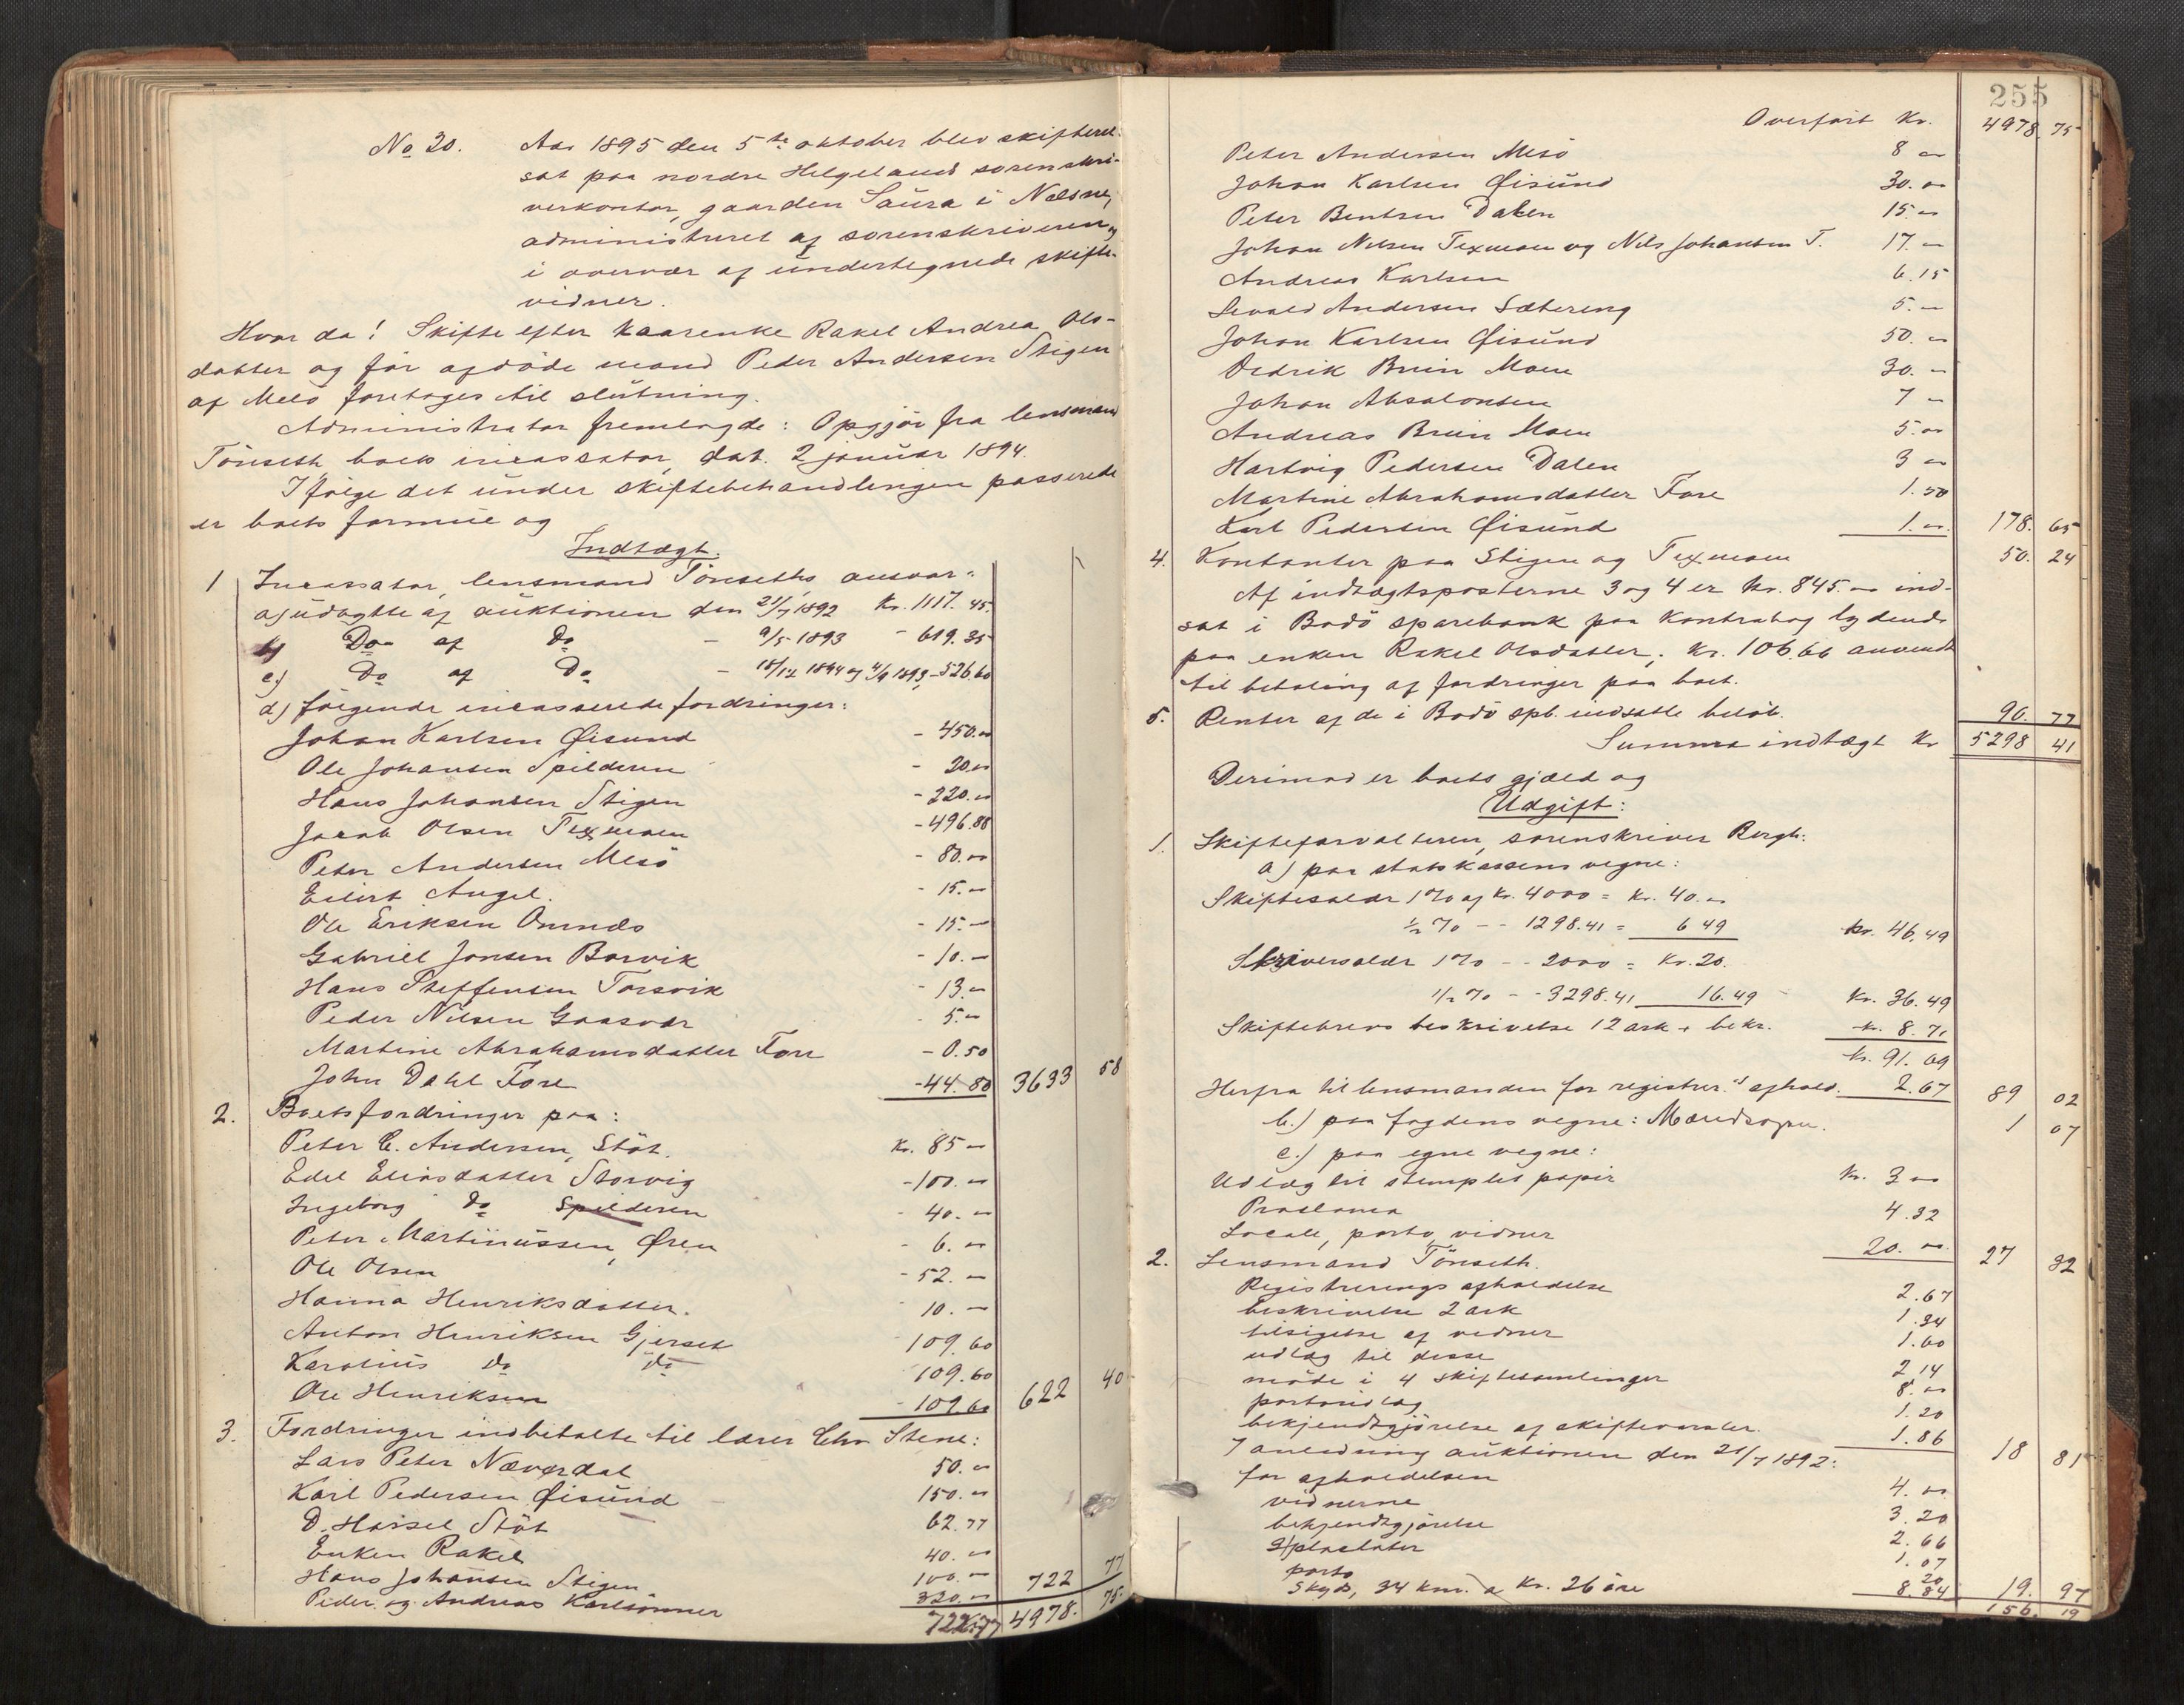 No 20. Aar 1895 den 5te oktober blev skifteret
sat paa nordre Helgeland sorenskri-
verkontor, gaarden Saura i Nesne,
administreret af sorenskriveren
i overvær af undertegnede skifte-
vidner.
Hvor da! Skifte efter kaarenke Rakel Andrea Ols-
datter og før afdøde mand Peder Andersen Stigen
af Melø foretages til slutning.
Administrator fremlagde: Opgjør fra lensmand
Tønseth, boets incassator, dat. 2 januar 1894.
I følge det under skiftebehandlingen passerede
er boets formue og
Indtægt:
1 Incassator, lensmand Tønseths ansvar:
a) udbytte af auktionen den 21/7 1892 Kr. 1117. 45.
b) Do af Do - 9/5 1893 - 619. 35
c) Do af Do - 18/12 1894 og 4/9 1893, - 526.60
d) følgende incasserede fordringer:
Johan Karlsen Øisund - 450.00
Ole Johansen Spilderen - 20.00
Hans Johansen Stigen - 220.00
Jacob Olsen Texmoen - 496.88
Peter Andersen Mesø - 80.00
Eilert Angel. - 15.00
Ole Eriksen Omnds - 15.00
Gabriel Jonsen Borvik - 10.00
Hans Steffensen Torsvik - 13.00
Peder Nilsen Gaasvær - 5.00
Martine Abrahamsdatter Fore - 0.50
John Dahl Fore - 44.80 3633 58
2. Boets fordringer paa:
Peter C. Andersen, Støt. Kr. 85 00
Edel Eliasdatter Storvig - 100.00
Ingeborg do Spilderen - 40.00
Peter Martinussen, Øren - 6.00
Ole Olsen - 52.00
Hanna Henriksdatter. 10.00
Anton Henriksen Gjerset 109.60
Karolius do do 109.60
Ole Henriksen - 109.60 622 40
3. Fordringer indbetalte til lærer Chr. Stene:
Lars Peter Næverdal 50.00
Karl Pedersen Øisund 150.00
D. Hassel Støt 62.77
Enken Rakel 40.00
Hans Johansen Stigen 100.00
Peder og Andreas Karlsønner 320.00 722 77
722.77 4978. 75.
255
Overført Kr. 4978. 75
Peter Andersen Mesø 8 00
Johan Karlsen Øisund 30.00
Peter Bentsen Dalen 15.00
Johan Nilsen Texmoen og Nils Johansen T. 17.00
Andreas Karlsen 6.15
Sevald Andersen Sætereng 5.00
Johan Karlsen Øisund 50.00
Dedrik Bruin Moen 30.00
Johan Absalonsen 7 00
Andreas Bruin Moen 5.00
Hartvig Pedersen Dalen 3 00
Martine Abrahamsdatter Fore 1.50
Karl Pedersen Øisund 1.00 178. 65
4. Kontanter paa Stigen og Texmoen 50. 24
Af indtægtsposterne 3 og 4 er Kr. 845.00 ind-
sat i Bodø sparebank paa Kontrabog lydende
paa enken Rakel Olsdatter, Kr. 106.66 anvendt
til betaling af fordringer paa boet.
5. Renter af de i Bodø spb. indsatte beløb. 90. 77
Summa indtægt Kr 5298 41
Derimod er boets gjæld og
Udgift:
1. Skifteforvalteren, sorenskriver Bergh:
a) paa statskassens vegne:
Skiftesalær 1% af Kr. 4000 = Kr. 40.00
1/2 % - - 1298.41 = 6 49 Kr. 46.49
Skriversalær 1% - - 2000 = Kr. 20.
1/2 % - - 3298.41 16.49 Kr. 36.49
Skiftebrevs beskrivelse 12 ark + bekr. Kr. 8.71
Kr. 91. 69
Herfra til lensmanden for registrer.s afhold. 2.67 89 02
b.) paa fogdens vegne: Mandsopn. 1 07
c.) paa egne vegne:
Udlæg til stemplet papir Kr. 3 00
Proclama 4.32
Locale, porto, vidner 20.00 27 32
2. Lensmand Tønseth.
Registrerings afholdelse 2.67
beskrivelse 2 ark 1.34
tilsigelse af vidner 1.60
udlæg til disse 2 14
møde i 4 skiftesamlinger 8.00
portoudlæg 1.20
bekjendtgjørelse af skiftevarsler. 1.86 18 81
I anledning auktionen den 21/7 1892:
for afholdelsen 4.00
vidnerne 3.20
bekjendtgjørelse 2.66
2 placater 1.07
porto 20
Skyds, 34 km. a Kr. 26 øre 8.84 19. 97
156. 19